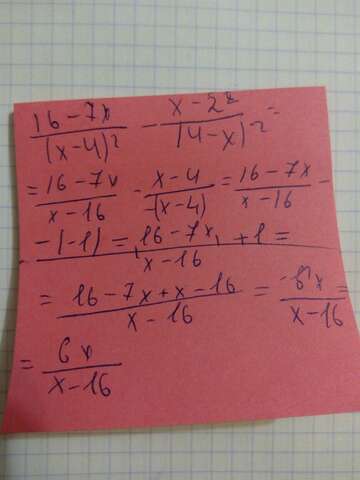 (16-7x)/(x-4)² - (x-2²)/(4-x)² =
= (16-7x)/(x-16) - (x-4)/(-(x-4)) = (16-7x)/(x-16) -
-(-1) = (16-7x)/(x-16) + 1 =
= (16-7x+x-16)/(x-16) = (-6x)/(x-16) =
= (6x)/(x-16)